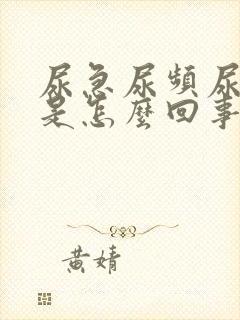 尿急尿頻尿
是怎麼回事
黃婧